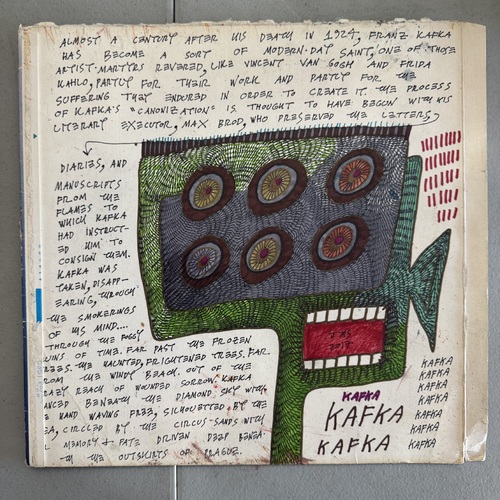 ALMOST A CENTURY AFTER HIS DEATH IN 1924, FRANZ KAFKA
HAS BECOME A SORT OF MODERN-DAY SAINT, ONE OF THOSE
ARTIST-MARTYRS REVERED, LIKE VINCENT VAN GOGH AND FRIDA
KAHLO, PARTLY FOR THEIR WORK AND PARTLY FOR THE
SUFFERING THEY ENDURED IN ORDER TO CREATE IT. THE PROCESS
OF KAFKA'S "CANONIZATION" IS THOUGHT TO HAVE BEGUN WITH HIS
LITERARY EXECUTOR, MAX BROD, WHO PRESERVED THE LETTERS,
DIARIES, AND
MANUSCRIPTS
FROM THE
FLAMES TO
WHICH KAFKA
HAD INSTRUCT-
ED HIM TO
CONSIGN THEM.
KAFKA WAS
TAKEN, DISAPP-
EARING, THROUGH
THE SMOKERINGS
OF HIS MIND....
THROUGH THE FOGGY
UINS OF TIME. FAR PAST THE FROZEN
REES. THE HAUNTED, FRIGHTENED TREES. FAR
ROM THE WINDY BEACH. OUT OF THE
RAZY REACH OF WOUNDED SORROW. KAFKA
ANCED BENEATH THE DIAMOND SKY WITH
E HAND WAVING FREE, SILHOUETTED BY THE
EA, CIRCLED BY THE CIRCUS SANDS WITH
L MEMORY + FATE DRIVEN DEEP BENEA-
TH THE OUTSKIRTS OF PRAGUE.
KAFKA
KAFKA
KAFKA
KAFKA
KAFKA
KAFKA
KAFKA
KAFKA
KAFKA
KAFKA